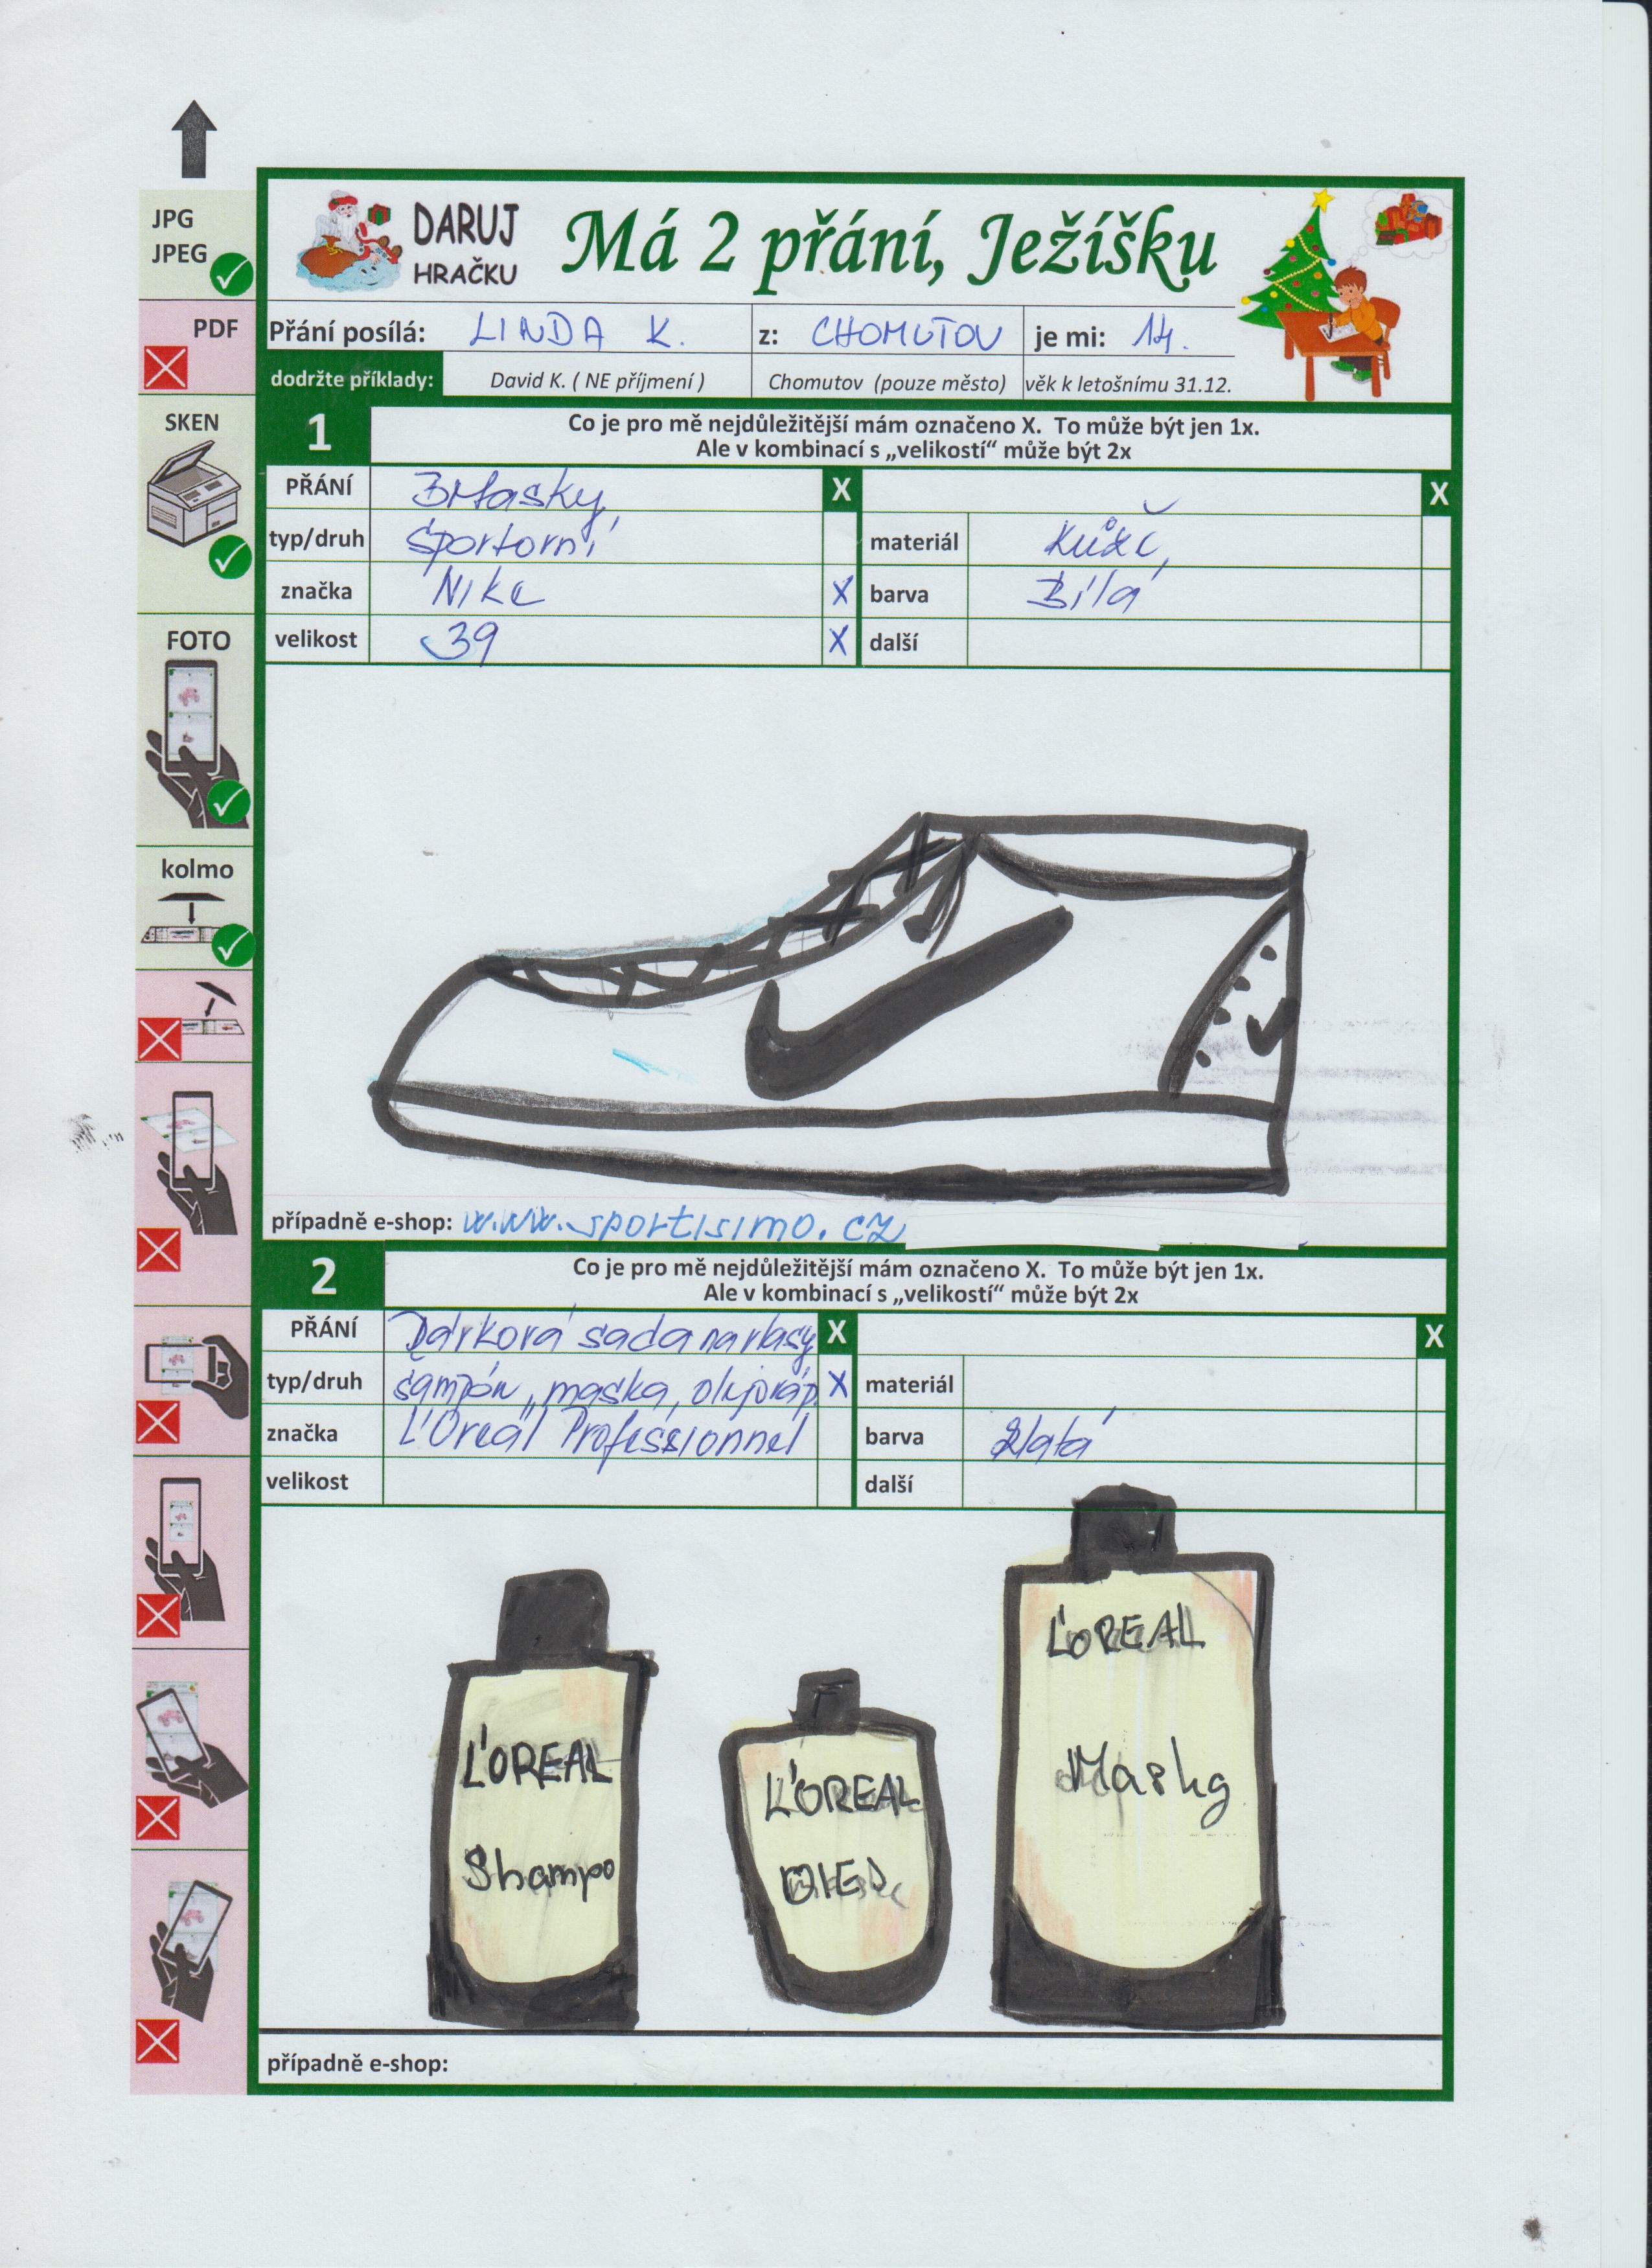 JPG
JPEG
PDF
SKEN
FOTO
kolmo
DARUJ
HRAČKU
Má 2 přání, Ježíšku
Přání posílá: LINDA K. z: CHOMUTOV je mi: 14.
dodržte příklady: David K. ( NE příjmení ) Chomutov (pouze město) věk k letošnímu 31.12.
1 Co je pro mě nejdůležitější mám označeno X. To může být jen 1x.
Ale v kombinací s „velikostí“ může být 2x
PŘÁNÍ X X
typ/druh Sportovní materiál Kůže
značka Nike X barva Bílá
velikost 39 X další
případně e-shop: www.sportisimo.cz
2 Co je pro mě nejdůležitější mám označeno X. To může být jen 1x.
Ale v kombinací s „velikostí“ může být 2x
PŘÁNÍ Dárková sada na vlasy X X
typ/druh šampón, maska, X materiál
značka L'Oreál Professionnel barva Zlatá
velikost další
L'OREAL
Shampo
L'OREAL
L'OREAL
případně e-shop: